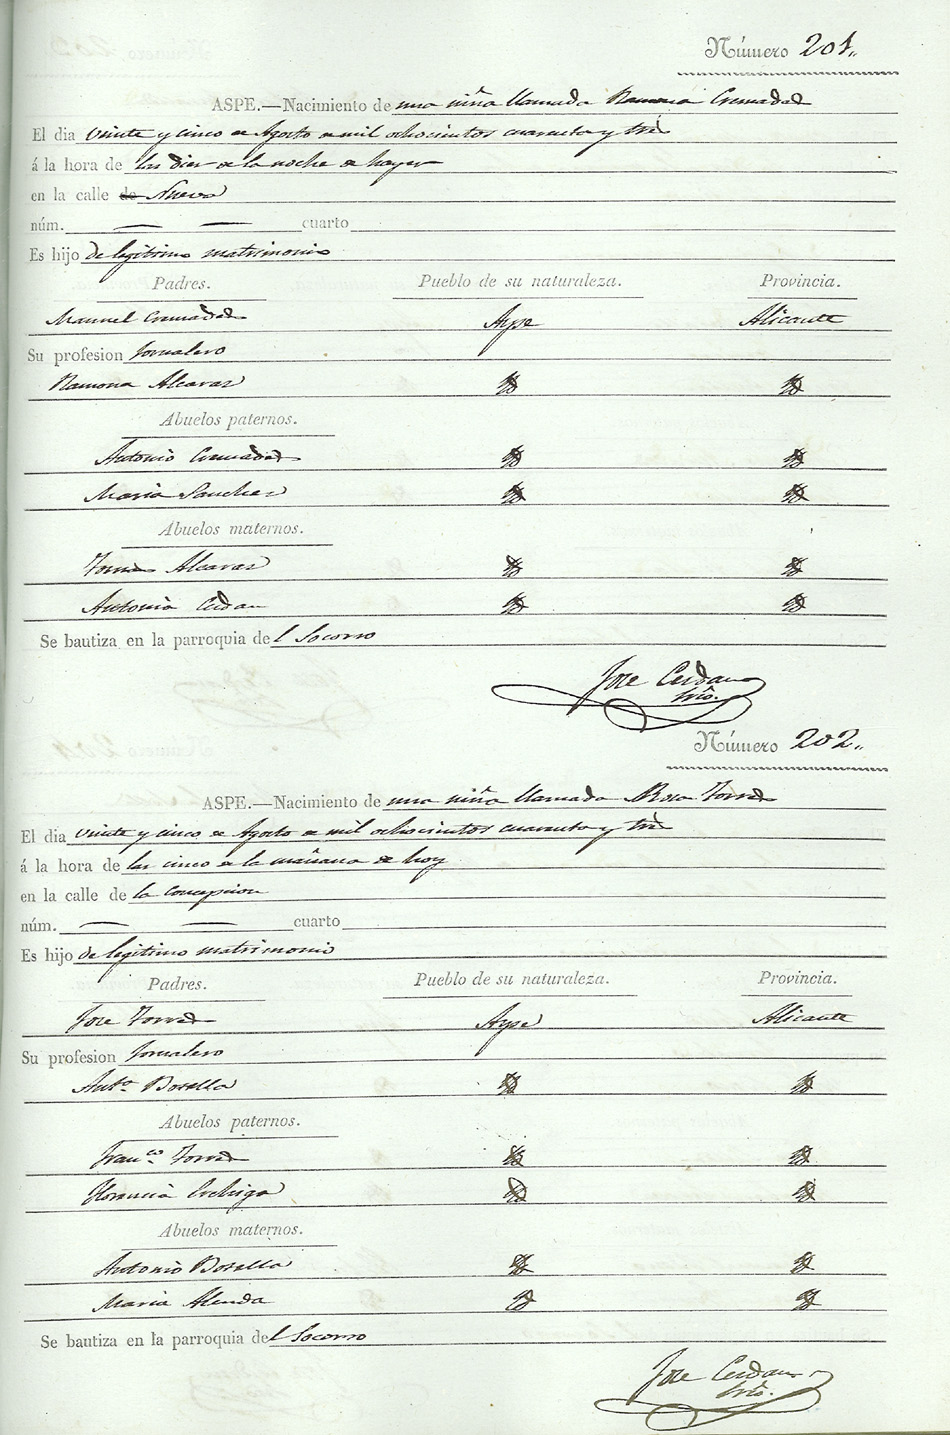 Número 201,,
ASPE.—Nacimiento de una niña llamada Ramona Cremades
El dia veinte y cinco de Agosto de mil ochocientos cuarenta y tres
á la hora de las diez de la noche de hayer
en la calle de Nueva
núm. — — cuarto
Es hijo de legitimo matrimonio
Padres. Pueblo de su naturaleza. Provincia.
Manuel Cremades Aspe Alicante
Su profesion Jornalero
Ramona Alcaraz
Abuelos paternos.
Antonio Cremades
Maria Sanchez
Abuelos maternos.
Tomas Alcaraz
Antonia Cerdan
Se bautiza en la parroquia del Socorro
Jose Cerdan
Srio.
Número 202,,
ASPE.—Nacimiento de una niña llamada Rosa Torres
El dia veinte y cinco de Agosto de mil ochocientos cuarenta y tres
á la hora de las cinco de la mañana de hoy
en la calle de la Concepcion
núm. — — cuarto
Es hijo de legitimo matrimonio
Padres. Pueblo de su naturaleza. Provincia.
Jose Torres Aspe Alicante
Su profesion Jornalero
Anta. Botella
Abuelos paternos.
Franco. Torres
Abuelos maternos.
Antonio Botella
Maria Alenda
Se bautiza en la parroquia del Socorro
Jose Cerdan
Srio.